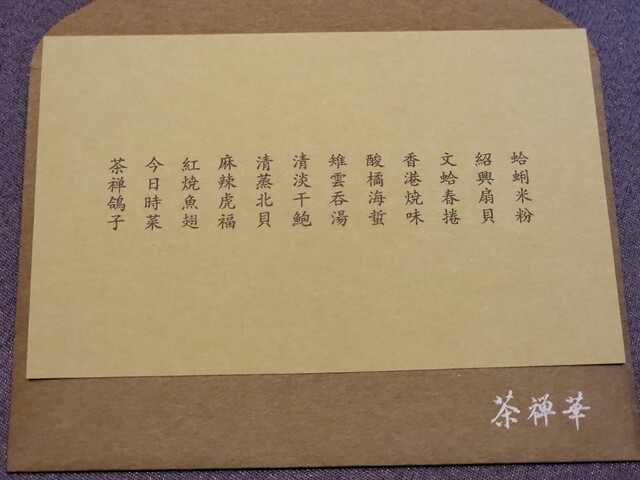 蛤蜊米粉
紹興扇貝
文蛤春捲
香港燒味
酸橘海蜇
雉雲吞湯
清淡干鮑
清蒸北貝
麻辣虎福
紅燒魚翅
今日時菜
茶禅鴿子
茶禅華